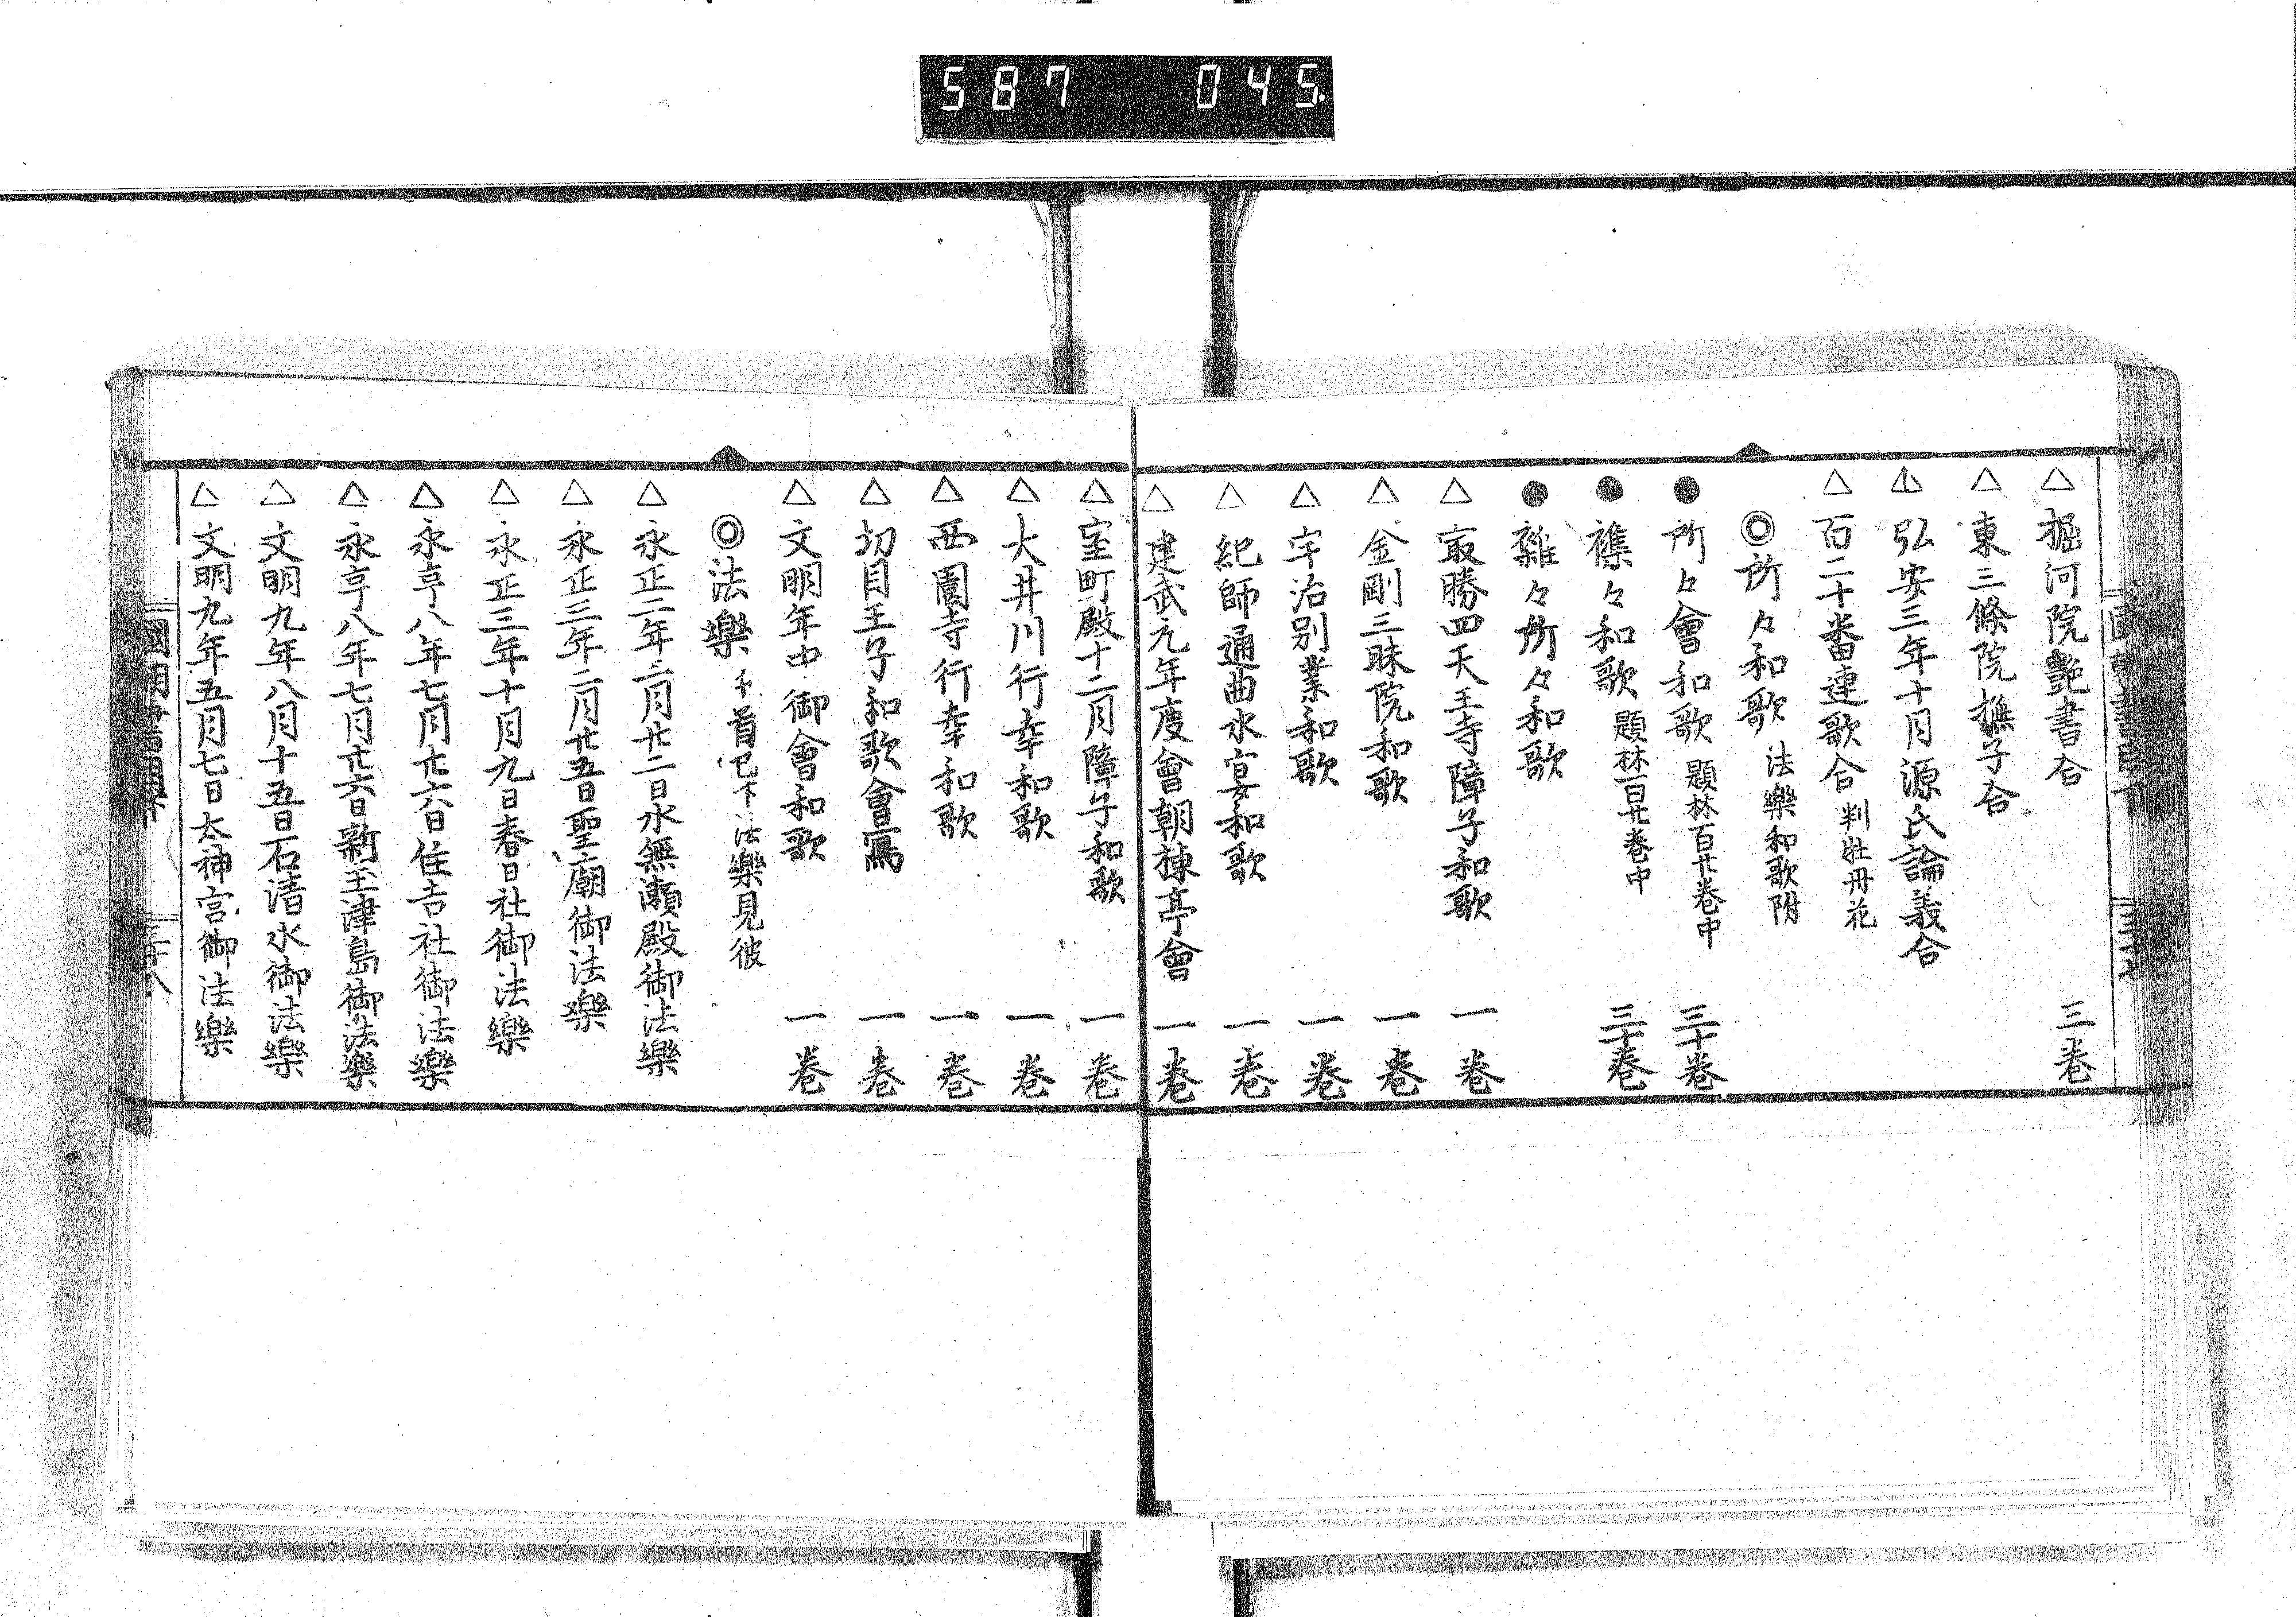 587 045.
△堀河院艶書合 三卷
△東三條院撫子合
△弘安三年十月源氏論義合
△百二十番連歌合 判牡丹花
◎所々和歌 法樂和歌附
●所々會和歌 題林百廿卷中 三十卷
●襍々和歌 題林百廿卷中 三十卷
●雜々所々和歌
△最勝四天王寺障子和歌 一卷
△金剛三昧院和歌 一卷
△宇治別業和歌 一卷
△紀師通曲水宴和歌 一卷
△建武元年度會朝棟亭會 一卷
△室町殿十二月障子和歌 一卷
△大井川行幸和歌 一卷
△西園寺行幸和歌 一卷
△切目王子和歌會寫 一卷
△文明年中御會和歌 一卷
◎法樂 千首已下法樂見彼
△永正二年二月廿二日水無瀬殿御法樂
△永正三年二月廿五日聖廟御法樂
△永正三年十月九日春日社御法樂
△永亨八年七月廿六日住吉社御法樂
△永亨八年七月廿六日新玉津島御法樂
△文明九年八月十五日石清水御法樂
△文明九年五月七日太神宮御法樂